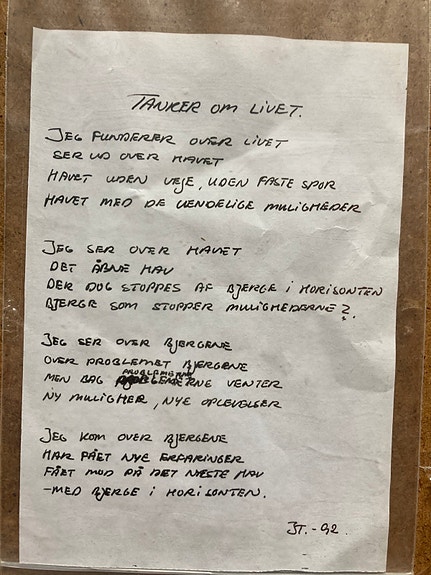 TANKER OM LIVET.
JEG FUNDERER OVER LIVET
SER UD OVER HAVET
HAVET UDEN VEJE, UDEN FASTE SPOR
HAVET MED DE UENDELIGE MULIGHEDER
JEG SER OVER HAVET
DET ÅBNE HAV
DER DOG STOPPES AF BJERGE I HORISONTEN
BJERGE SOM STOPPER MULIGHEDERNE?.
JEG SER OVER BJERGENE
OVER PROBLEMET BJERGENE
MEN BAG PROBLEMERNE VENTER
NY MULIGHER, NYE OPLEVELSER
JEG KOM OVER BJERGENE
HAR FÅET NYE ERFARINGER
FÅET MOD PÅ DET NÆSTE HAV
-MED BJERGE I HORISONTEN.
JT. - 92.